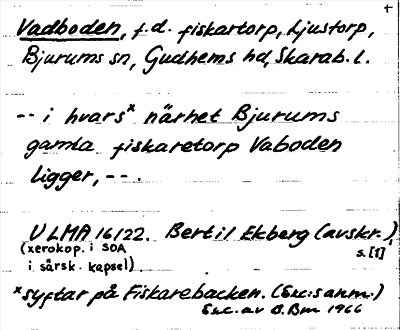 +
Vadboden, f.d. fiskartorp, Ljustorp,
Bjurums sn, Gudhems hd, Skarab. l.
-- i hvars× närhet Bjurums
gamla fiskaretorp Vaboden
ligger, -- .
ULMA 16122. Bertil Ekberg (avskr.),
(xerokop. i SOA s. [1]
i särsk. kapsel)
×syftar på Fiskarebacken. (Exc:s anm.)
Exc. av B. Bm 1966